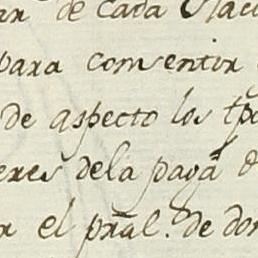 de cada
para consentir
de aspecto los
dela pagã
el prãl. de